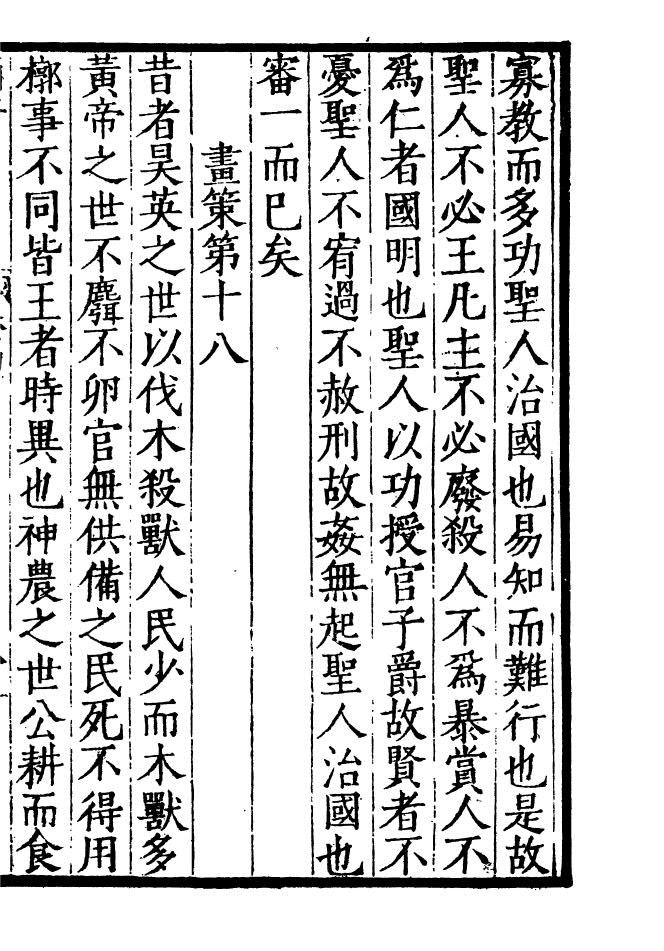 寡教而多功聖人治國也易知而難行也是故
聖人不必王凡主不必廢殺人不爲暴賞人不
爲仁者國明也聖人以功授官子爵故賢者不
憂聖人不宥過不赦刑故姦無起聖人治國也
審一而巳矣
畫策第十八
昔者昊英之世以伐木殺獸人民少而木獸多
黃帝之世不麛不卵官無供備之民死不得用
槨事不同皆王者時異也神農之世公耕而食